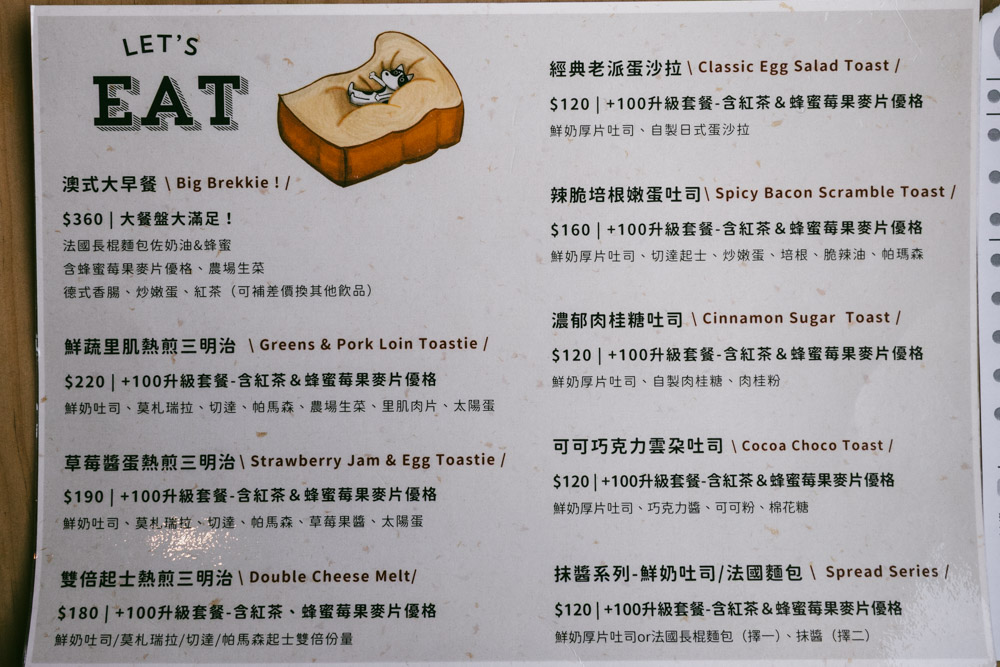 LET'S
EAT
澳式大早餐 \ Big Brekkie ! /
$360 | 大餐盤大滿足！
法國長棍麵包佐奶油&蜂蜜
含蜂蜜莓果麥片優格、農場生菜
德式香腸、炒嫩蛋、紅茶（可補差價換其他飲品）
鮮蔬里肌熱煎三明治 \ Greens & Pork Loin Toastie /
$220 | +100升級套餐-含紅茶＆蜂蜜莓果麥片優格
鮮奶吐司、莫札瑞拉、切達、帕馬森、農場生菜、里肌肉片、太陽蛋
草莓醬蛋熱煎三明治 \ Strawberry Jam & Egg Toastie /
$190 | +100升級套餐-含紅茶＆蜂蜜莓果麥片優格
鮮奶吐司、莫札瑞拉、切達、帕馬森、草莓果醬、太陽蛋
雙倍起士熱煎三明治 \ Double Cheese Melt/
$180 | +100升級套餐-含紅茶、蜂蜜莓果麥片優格
鮮奶吐司/莫札瑞拉/切達/帕馬森起士雙倍份量
經典老派蛋沙拉 \ Classic Egg Salad Toast /
$120 | +100升級套餐-含紅茶＆蜂蜜莓果麥片優格
鮮奶厚片吐司、自製日式蛋沙拉
辣脆培根嫩蛋吐司 \ Spicy Bacon Scramble Toast /
$160 | +100升級套餐-含紅茶＆蜂蜜莓果麥片優格
鮮奶厚片吐司、切達起士、炒嫩蛋、培根、脆辣油、帕瑪森
濃郁肉桂糖吐司 \ Cinnamon Sugar Toast /
$120 | +100升級套餐-含紅茶＆蜂蜜莓果麥片優格
鮮奶厚片吐司、自製肉桂糖、肉桂粉
可可巧克力雲朵吐司 \ Cocoa Choco Toast /
$120 | +100升級套餐-含紅茶＆蜂蜜莓果麥片優格
鮮奶厚片吐司、巧克力醬、可可粉、棉花糖
抹醬系列-鮮奶吐司/法國麵包 \ Spread Series /
$120 | +100升級套餐-含紅茶＆蜂蜜莓果麥片優格
鮮奶厚片吐司or法國長棍麵包（擇一）、抹醬（擇二）